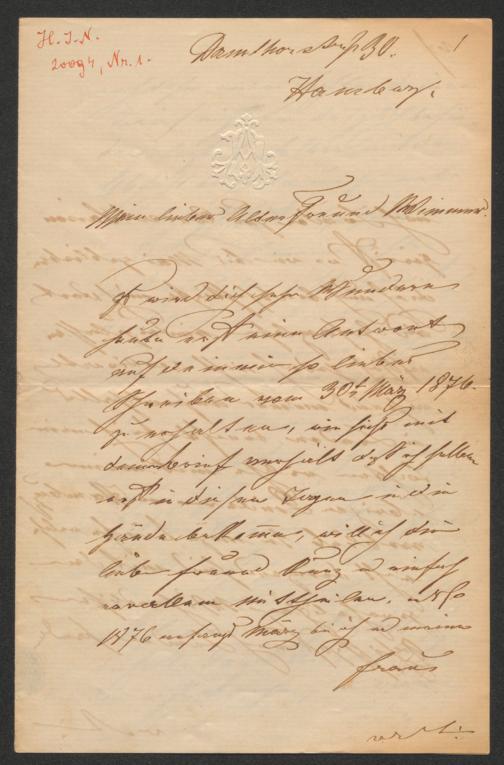 H. I. N.
20094, Nr. 1.
1
Dammthorstraße 30.
Hamburg.
Mein lieber Alter Freund
Es wird dich sehr Wundern
heute erst eine Antwort
auf dein mir so liebes
Schreiben vom 30t März 1876
zu erhalten, wie sich mit
dem brief verhält daß ich selben
erst in diesen Tagen in die
Hände bekomme, will ich dir
lieber freund kurz u einfach
vor allem mittheilen.
1876 anfangs März bin ich u meine
frau